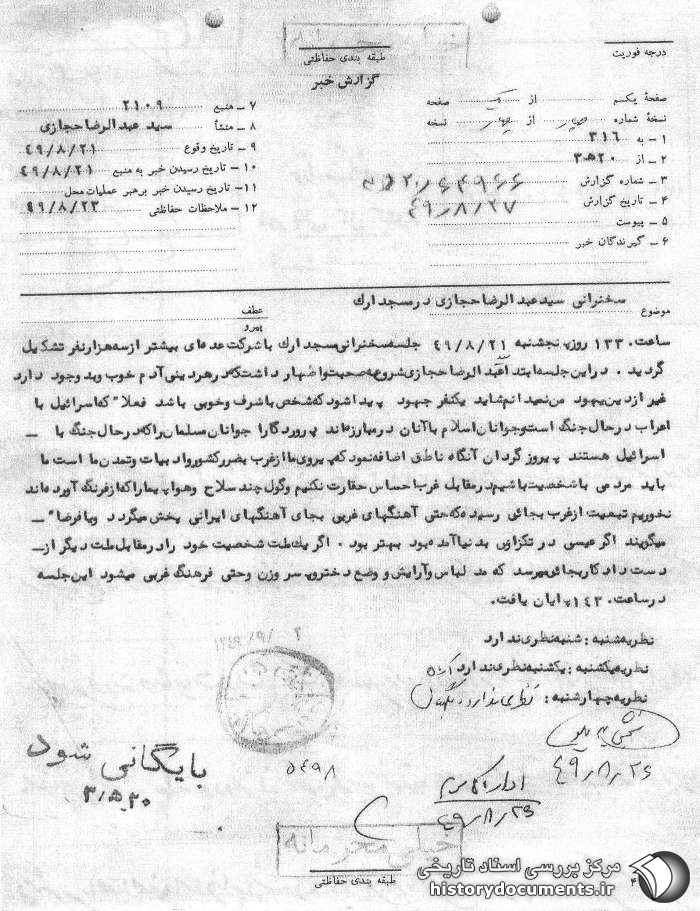 درجه فوریت
طبقه بندی حفاظتی
گزارش خبر
صفحهٔ یکم از صفحه
نسخهٔ شماره از نسخه
۱ - به ۳۱۶
۲ - از ۲۰ ه‍ ۳
۳ - شماره گزارش
۴ - تاریخ گزارش ۴۹/۸/۲۷
۵ - پیوست
۶ - گیرندگان خبر
۷ - منبع ۲۱۰۹
۸ - منشأ سید عبدالرضا حجازی
۹ - تاریخ وقوع ۴۹/۸/۲۱
۱۰ - تاریخ رسیدن خبر به منبع ۴۹/۸/۲۱
۱۱ - تاریخ رسیدن خبر برهبر عملیات محل
۱۲ - ملاحظات حفاظتی ۴۹/۸/۲۳
موضوع سخنرانی سید عبدالرضا حجازی در مسجد ارک
عطف
پیرو
ساعت ۱۳۳۰ روز پنجشنبه ۴۹/۸/۲۱ جلسه سخنرانی مسجد ارک با شرکت عده‌ای بیشتر از سه هزار نفر تشکیل
گردید . در این جلسه ابتدا سید عبدالرضا حجازی شروع به صحبت و اظهار داشت که در هر دینی آدم خوب و بد وجود دارد
غیر از دین یهود من نمیدانم شاید یکنفر جهود پیدا شود که شخص با شرف و خوبی باشد فعلا" که اسرائیل با
اعراب در حال جنگ است و جوانان اسلام با آنان در مبارزه‌اند پروردگارا جوانان مسلمان را که در حال جنگ با -
اسرائیل هستند پیروز گردان آنگاه ناطق اضافه نمود که پیروی ما از غرب بضرر کشور و ادبیات و تمدن ما است ما
باید مردمی با شخصیت باشیم در مقابل غرب احساس حقارت نکنیم و گول چند سلاح و هواپیما را که از فرنگ آورده‌اند
نخوریم تبعیت از غرب بجائی رسیده که حتی آهنگهای غربی بجای آهنگهای ایرانی پخش میگردد و یا فرضا" -
میگویند اگر عیسی در تگزاس بدنیا آمده بود بهتر بود . اگر یک ملت شخصیت خود را در مقابل ملت دیگر از -
دست داد کار بجائی میرسد که مد لباس و آرایش و وضع دختر و پسر و زن و حتی فرهنگ غربی میشود این جلسه
در ساعت ۱۴۳۰ پایان یافت.
نظریه شنبه : شنبه نظری ندارد
نظریه یکشنبه : یکشنبه نظری ندارد
نظریه چهارشنبه : نظری ندارد
۴۹/۸/۲۶
بایگانی شود
۲۰ ه‍ ۳
۵۴۹۸
۴۹/۸/۲۶
خیلی محرمانه
طبقه بندی حفاظتی
مرکز بررسی اسناد تاریخی
historydocuments.ir